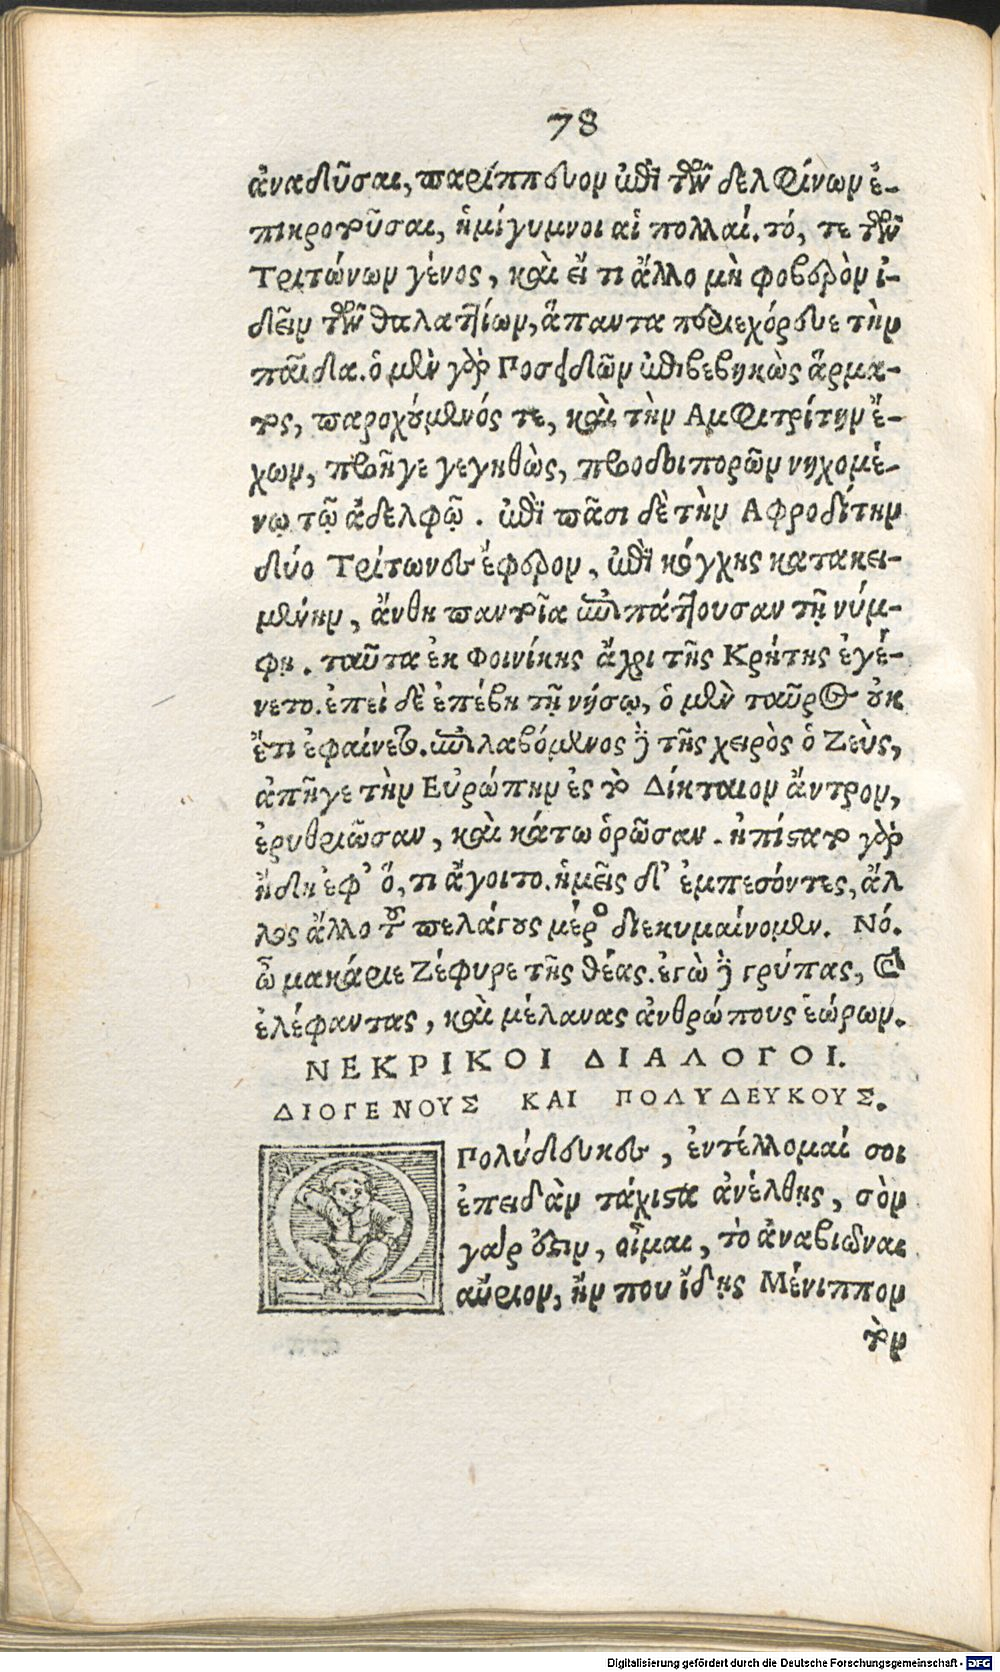 78
ἀναδῦσαι, παρίππευον ἐπὶ τῶν δελφίνων ἐ-
πικροτοῦσαι, ἡμίγυμνοι αἱ πολλαί. τό, τε τῶν
Τριτώνων γένος, καὶ εἴ τι ἄλλο μὴ φοβερὸν ἰ-
δεῖν τῶν θαλαττίων, ἅπαντα περιεχόρευε τὴν
παῖδα. ὁ μὲν γὰρ Ποσειδῶν ἐπιβεβηκὼς ἅρμα-
τος, παροχούμενός τε, καὶ τὴν Αμφιτρίτην ἔ-
χων, προῆγε γεγηθὼς, προοδοιπορῶν νηχομέ-
νῳ τῷ ἀδελφῷ. ἐπὶ πᾶσι δὲ τὴν Αφροδίτην
δύο Τρίτωνες ἔφερον, ἐπὶ κόγχης κατακει-
μένην, ἄνθη παντοῖα ἐπιπάττουσαν τῇ νύμ-
φῃ. ταῦτα ἐκ Φοινίκης ἄχρι τῆς Κρήτης ἐγέ-
νετο. ἐπεὶ δὲ ἐπέβη τῇ νήσῳ, ὁ μὲν ταῦρος οὐκ
ἔτι ἐφαίνετο. ἐπιλαβόμενος δὲ τῆς χειρὸς ὁ Ζεὺς,
ἀπῆγε τὴν Εὐρώπην ἐς τὸ Δίκταιον ἄντρον,
ἐρυθριῶσαν, καὶ κάτω ὁρῶσαν. ἠπίστατο γὰρ
ἤδη ἐφ’ ὅ, τι ἄγοιτο. ἡμεῖς δ’ ἐμπεσόντες, ἄλ
λος ἄλλο τοῦ πελάγους μέρος διεκυμαίνομεν. Νό.
ὦ μακάριε Ζέφυρε τῆς θέας. ἐγὼ δὲ γρύπας, καὶ
ἐλέφαντας, καὶ μέλανας ἀνθρώπους ἑώρων.
ΝΕΚΡΙΚΟΙ ΔΙΑΛΟΓΟΙ.
ΔΙΟΓΕΝΟΥΣ ΚΑΙ ΠΟΛΥΔΕΥΚΟΥΣ.
Ω Πολύδευκες, ἐντέλλομαί σοι
ἐπειδὰν τάχιστα ἀνέλθῃς, σὸν
γάρ ἐστιν, οἶμαι, τὸ ἀναβιῶναι
αὔριον, ἤν που ἴδῃς Μένιππον
τὸν
Digitalisierung gefördert durch die Deutsche Forschungsgemeinschaft - DFG